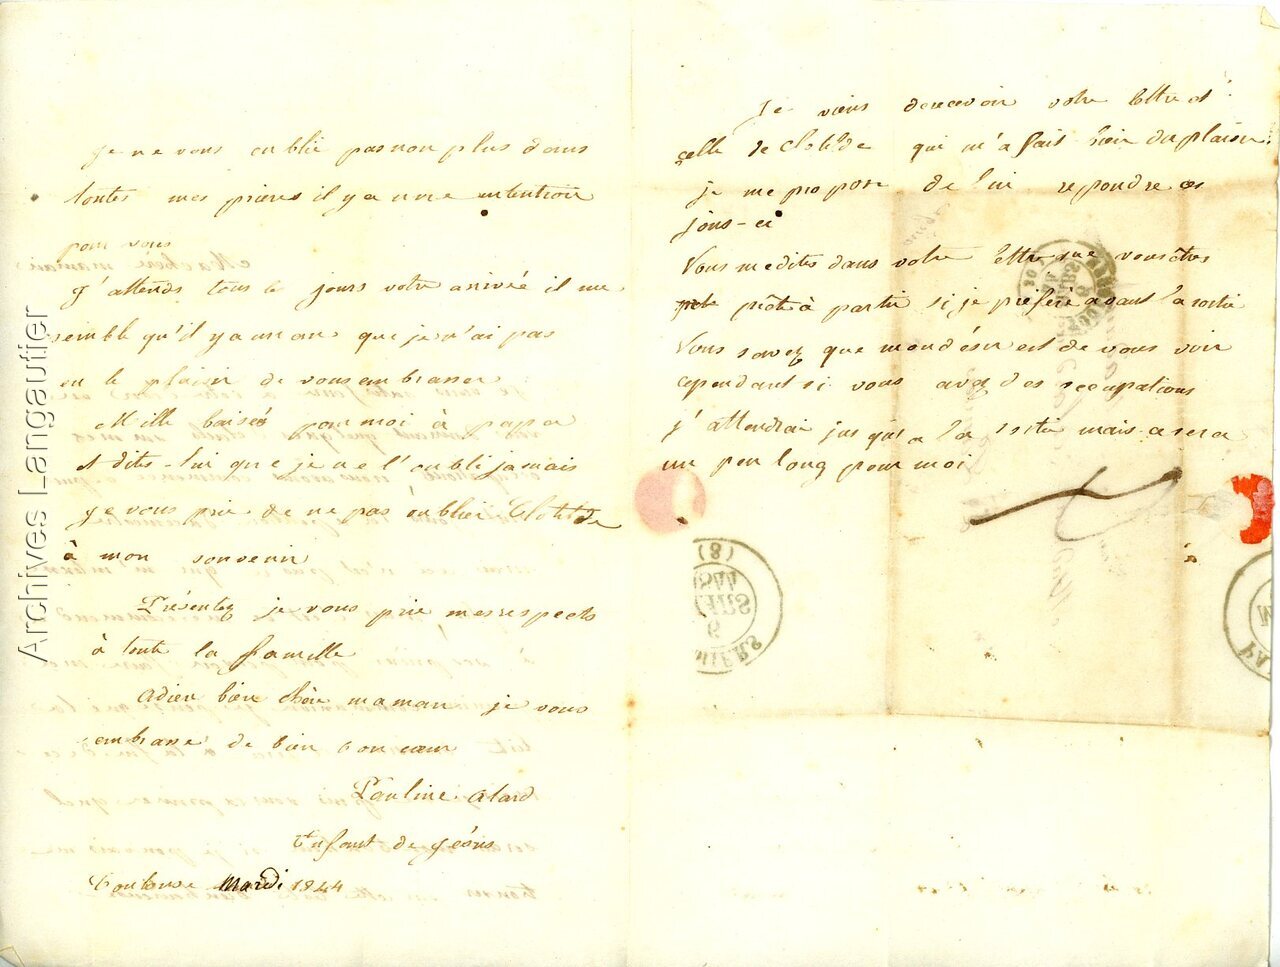 je ne vous oublie pas non plus dans
toutes mes prieres il y a une intention
pour vous
J'attends tous le jours votre arrivée il me
semble qu'il y a un an que je n'ai pas
eu le plaisir de vous embrasser
Mille baisés pour moi à papa
et dites-lui que je ne l'oubli jamais
je vous prie de ne pas oublier Clotilde
à mon souvenir
Présentez je vous prie mes respects
à toute la famille
adieu bien chère maman je vous
embrasse de bien bon cœur
Pauline Alard
Enfant de Jésus
Toulouse Mardi 1844
Je viens de recevoir votre lettre et
celle de Clotilde qui m'a fait bien du plaisir
je me propose de lui repondre ces
jours-ci
Vous me dites dans votre lettre que vous êtes
prête à partir si je préfère avant la sortie
Vous savez que mon désir est de vous voir
cependant si vous avez des occupations
j'attendrai jusqu'a la sortie mais a sera
un peu long pour moi
(8)
MARS
6
Archives Langautier